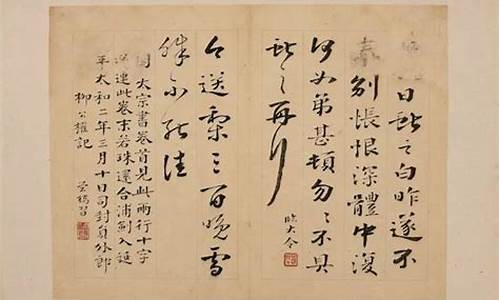 日獻之白昨遂不
奉別悵恨深體中復
何如弟甚頓勿〻不具
獻之再拜
臨大令
今送梨三百晚雪
殊不能佳
因太宗書卷首見此兩行十字
遂連此卷末若珠還合浦劍入延
平太和二年三月十日司封員外郎
柳公權記